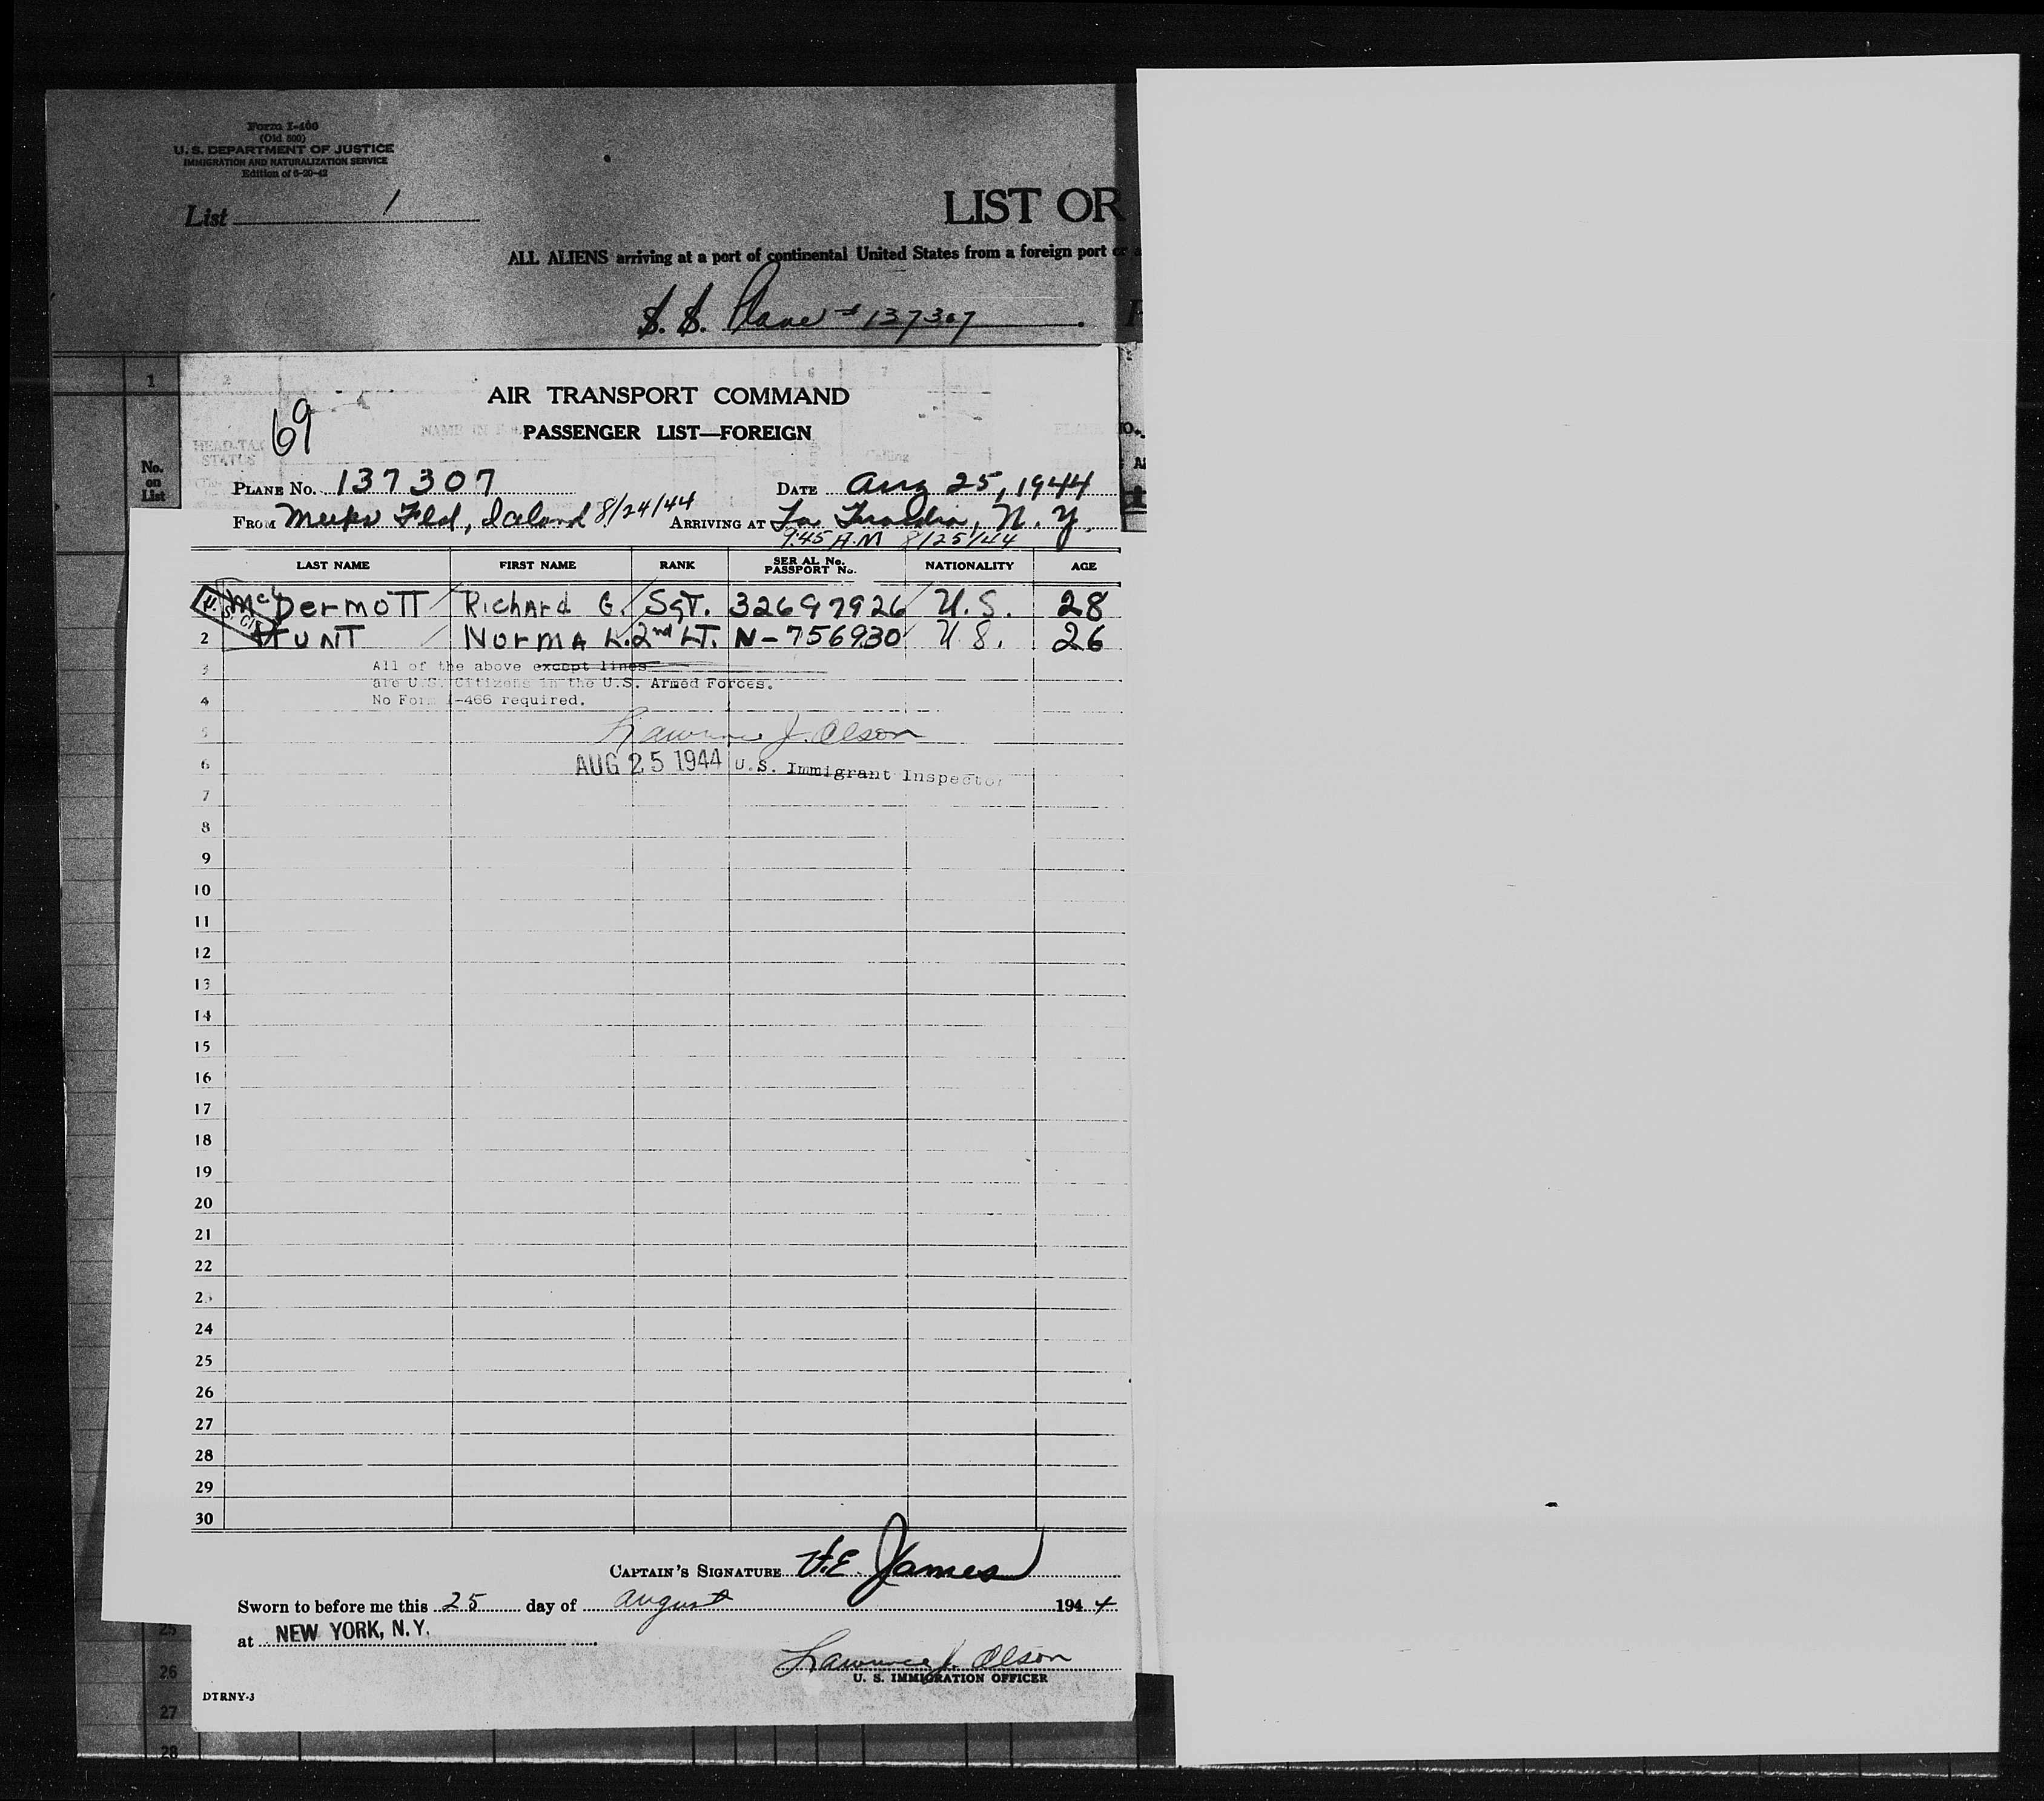 Form I-466
(Old 500)
U. S. DEPARTMENT OF JUSTICE
IMMIGRATION AND NATURALIZATION SERVICE
Edition of 6-20-42
List 1
LIST OR
ALL ALIENS arriving at a port of continental United States from a foreign port or a
S. S. Plane # 137307
1
2
6
7
AIR TRANSPORT COMMAND
69
PASSENGER LIST—FOREIGN
HEAD-TAX
STATUS
No.
on
List
PLANE No. 137307 DATE Aug 25, 1944
FROM Meeks Fld, Iceland 8/24/44 ARRIVING AT La Guardia, N. Y.
9:45 A.M 8/25/44
LAST NAME FIRST NAME RANK SERIAL No. PASSPORT No. NATIONALITY AGE
U.S. CIT
McDermott Richard G. Sgt. 32697926 U.S. 28
2 HUNT Norma L. 2nd LT. N-756930 U.S. 26
3 All of the above except lines
are U.S. Citizens in the U.S. Armed Forces.
4 No Form I-466 required.
5 Lawrence J. Olson
6 AUG 25 1944 U.S. Immigrant Inspector
7
8
9
10
11
12
13
14
15
16
17
18
19
20
21
22
23
24
25
26
27
28
29
30
CAPTAIN'S SIGNATURE H.E. James
Sworn to before me this 25 day of August 1944
at NEW YORK, N.Y.
Lawrence J. Olson
U. S. IMMIGRATION OFFICER
DTRNY-3
25
26
27
28